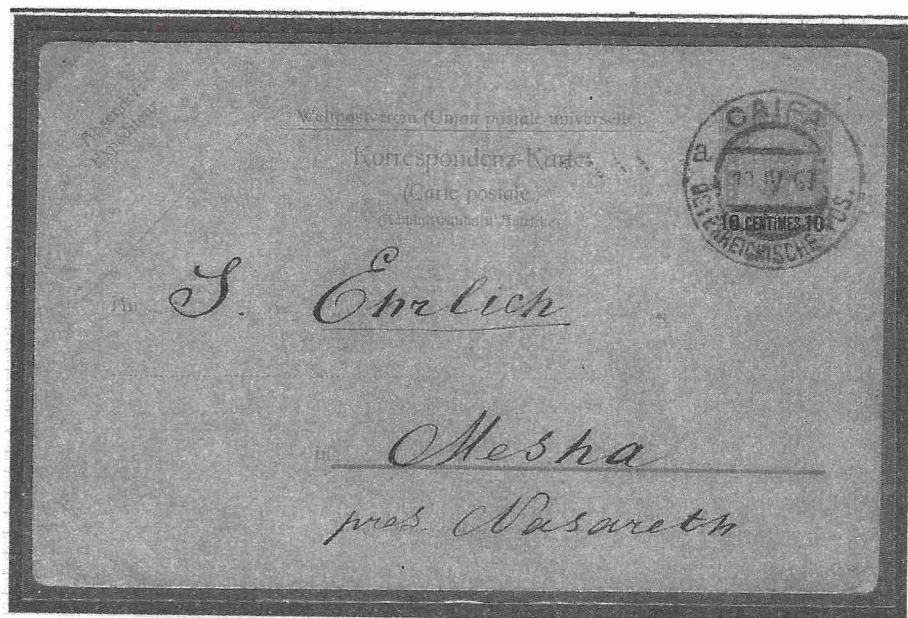 Absender:
Expéditeur:
Weltpostverein (Union postale universelle)
Korrespondenz-Karte
(Carte postale)
CAIFA
a
IV 07
10 CENTIMES 10
ÖSTERREICHISCHE POST
S. Ehrlich
in
Mesha
près Nasareth